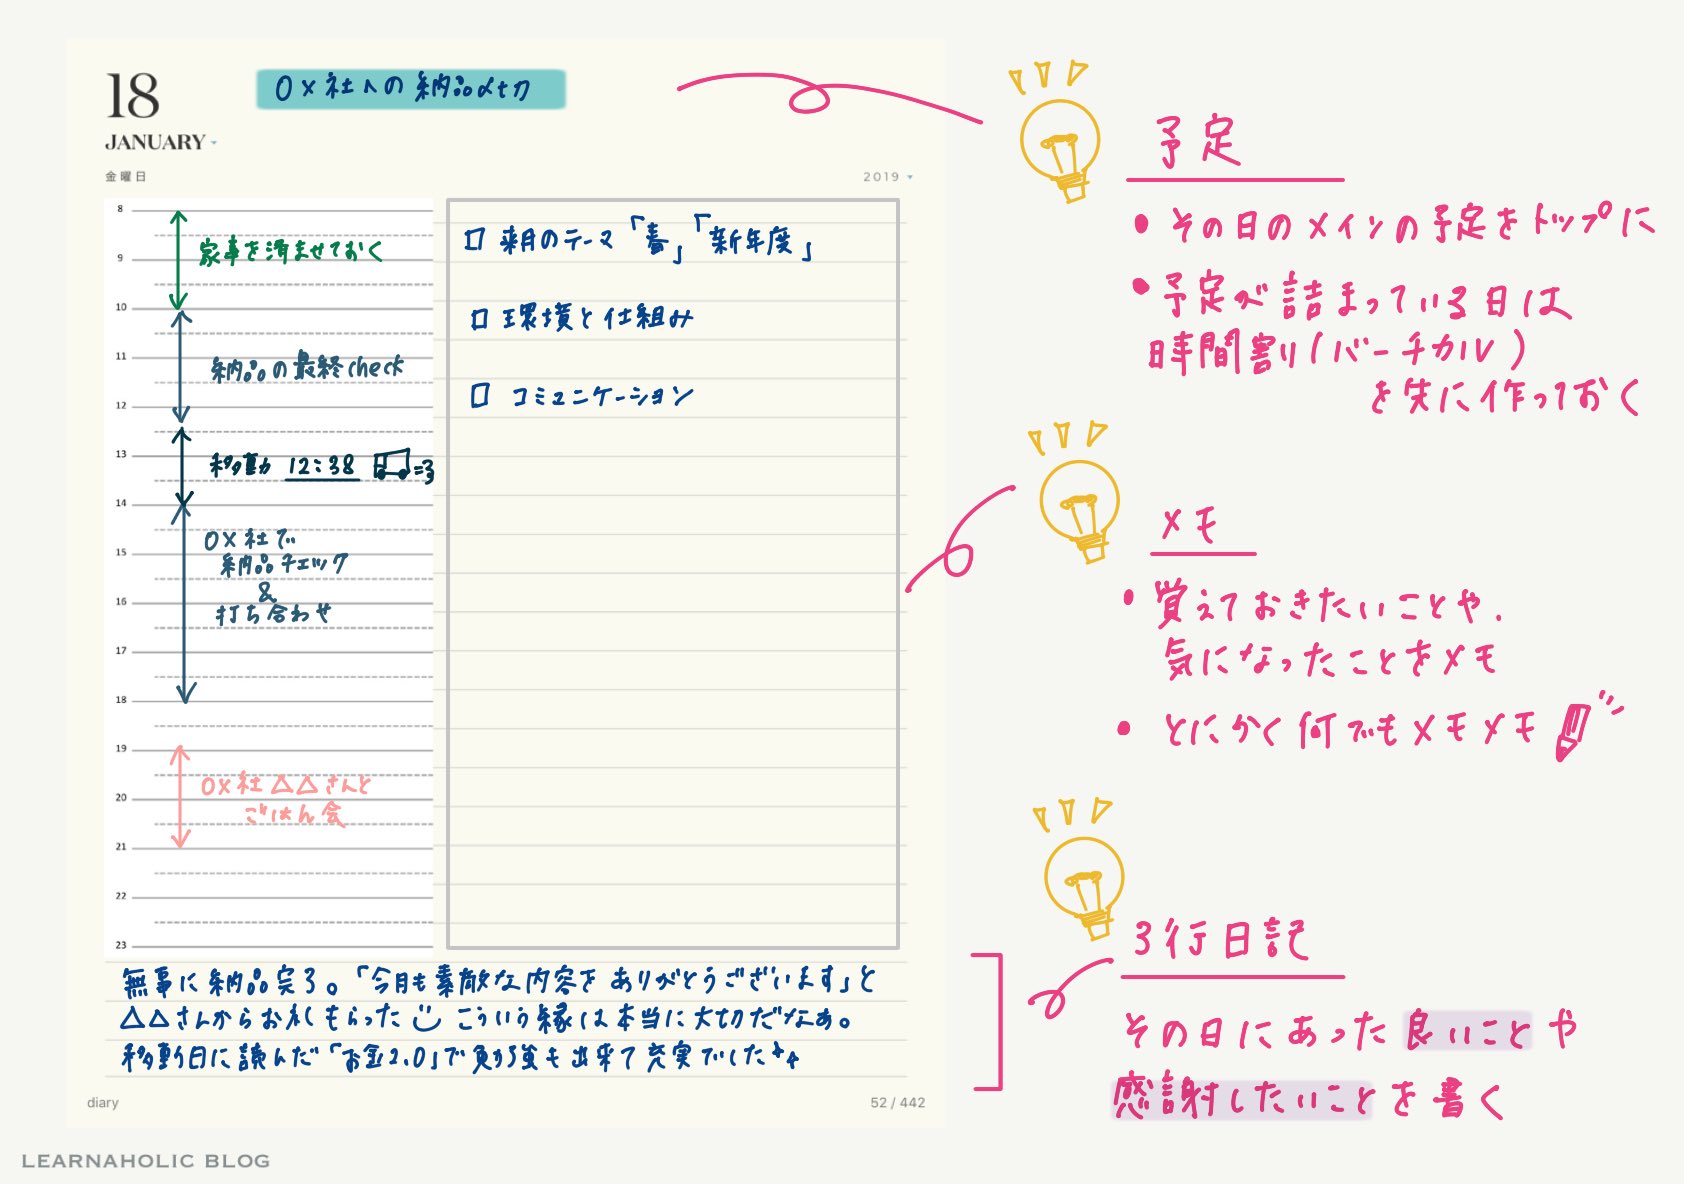 18
JANUARY
金曜日
2019
○×社への納品〆切
8
家事を済ませておく
9
10
11
納品の最終check
12
13
移動 12:38 =3
14
○×社で
15
納品チェック
&
16
打ち合わせ
17
18
19
○×社△△さんと
20
ごはん会
21
22
23
来月のテーマ「春」「新年度」
環境と仕組み
コミュニケーション
無事に納品完了。「今月も素敵な内容をありがとうございます」と
△△さんからお礼もらった こういう縁は本当に大切だなぁ。
移動日に読んだ「お金2.0」で勉強も出来て充実でした
diary
52 / 442
予定
• その日のメインの予定をトップに
• 予定が詰まっている日は
時間割り(バーチカル)
を先に作っておく
メモ
• 覚えておきたいことや.
気になったことをメモ
• とにかく何でもメモメモ
3行日記
その日にあった良いことや
感謝したいことを書く
LEARNAHOLIC BLOG